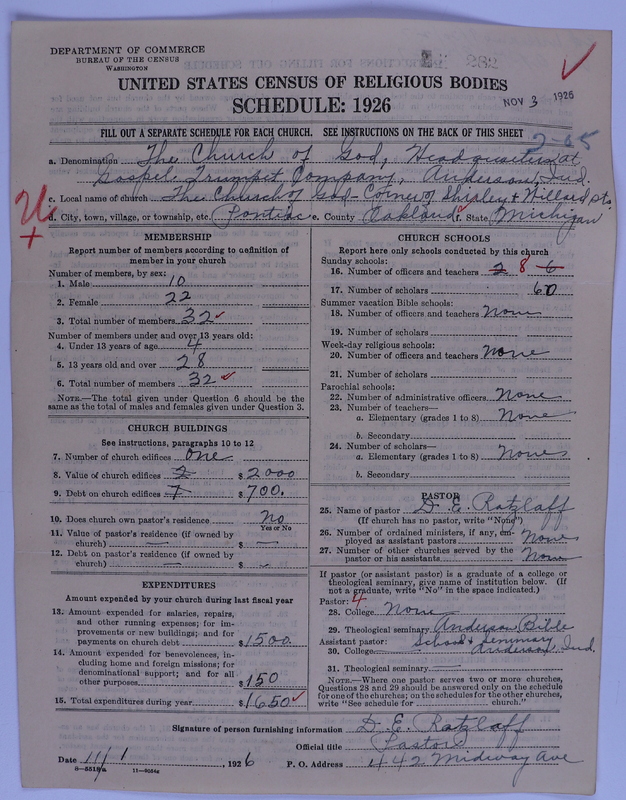 DEPARTMENT OF COMMERCE
BUREAU OF THE CENSUS
WASHINGTON
UNITED STATES CENSUS OF RELIGIOUS BODIES
SCHEDULE: 1926
NOV 3 1926
FILL OUT A SEPARATE SCHEDULE FOR EACH CHURCH. SEE INSTRUCTIONS ON THE BACK OF THIS SHEET
a. Denomination The Church of God, Headquarters at
Gospel Trumpet Company, Anderson, Ind.
c. Local name of church The Church of God - Corner of Shipley & Hillard sts.
d. City, town, village, or township, etc. Pontiac e. County Oakland f. State Michigan
MEMBERSHIP
Report number of members according to definition of
member in your church
Number of members, by sex:
1. Male 10
2. Female 22
3. Total number of members 32
Number of members under and over 13 years old:
4. Under 13 years of age 4
5. 13 years old and over 28
6. Total number of members 32
NOTE.—The total given under Question 6 should be
same as the total of males and females given under Question 3.
CHURCH BUILDINGS
See instructions, paragraphs 10 to 12
7. Number of church edifices one
8. Value of church edifices $2000
9. Debt on church edifices $700.
10. Does church own pastor's residence No
Yes or No
11. Value of pastor's residence (if owned by
church) — $ —
12. Debt on pastor's residence (if owned by
church) — $ —
EXPENDITURES
Amount expended by your church during last fiscal year
13. Amount expended for salaries, repairs,
and other running expenses; for im-
provements or new buildings; and for
payments on church debt $1500.
14. Amount expended for benevolences, in-
cluding home and foreign missions; for
denominational support; and for all
other purposes $150
15. Total expenditures during year $1650
CHURCH SCHOOLS
Report here only schools conducted by this church
Sunday schools:
16. Number of officers and teachers 2 8 6
17. Number of scholars 60
Summer vacation Bible schools:
18. Number of officers and teachers None
19. Number of scholars
Week-day religious schools:
20. Number of officers and teachers None
21. Number of scholars
Parochial schools:
22. Number of administrative officers None
23. Number of teachers—
a. Elementary (grades 1 to 8) None
b. Secondary
24. Number of scholars—
a. Elementary (grades 1 to 8) None
b. Secondary
PASTOR
25. Name of pastor D. E. Ratzlaff
(If church has no pastor, write "None")
26. Number of ordained ministers, if any, em-
ployed as assistant pastors None
27. Number of other churches served by the
pastor or his assistants None
If pastor (or assistant pastor) is a graduate of a college or
theological seminary, give name of institution below. (If
not a graduate, write "No" in the space indicated.)
Pastor: 4
28. College None
29. Theological seminary Anderson Bible
Assistant pastor: School & Seminary
30. College Anderson, Ind.
31. Theological seminary
NOTE.—Where one pastor serves two or more churches,
Questions 28 and 29 should be answered only on the schedule
for one of the churches; on the schedules for the other churches,
write "See schedule for church."
Signature of person furnishing information D. E. Ratzlaff
Official title Pastor
Date 11/1, 1926 P. O. Address 442 Midway Ave
8-5518a 11-9034